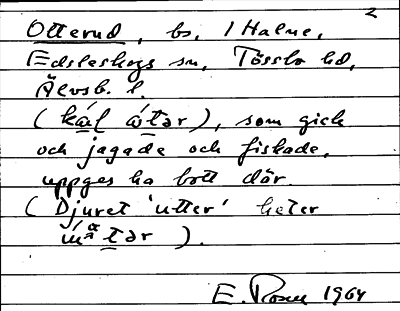 2
Otterud, bs, i Halne,
Edsleskogs sn, Tössbo hd,
Älvsb. l.
(kál ótər), som gick
och jagade och fiskade,
uppges ha bott där.
(Djuret 'utter' heter
tər).
E. Rosen 1964